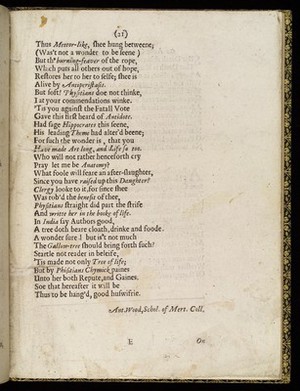 (21)
Thus Meteor-like, shee hung betweene;
(Was't not a wonder to be seene)
But th' burning-feaver of the rope,
Which puts all others out of hope,
Restores her to her selfe; shee is
Alive by Antiperistasis.
But soft! Physitians doe not thinke,
I at your commendations winke.
'Tis you against the Fatall Vote
Gave this first heard of Antidote.
Had sage Hippocrates this seene,
His leading Theme had alter'd beene;
For such the wonder is, that you
Have made Art long, and Life so too.
Who will not rather henceforth cry
Pray let me be Anatomy?
What foole will feare an after-slaughter,
Since you have raised up this Daughter?
Clergy looke to it, for since shee
Was rob'd the benefit of thee,
Physitians straight did part the strife
And writte her in the booke of life.
In India say Authors good,
A tree doth beare cloath, drinke and foode.
A wonder sure! but is't not much
The Gallow-tree should bring forth such?
Startle not reader in beleife,
'Tis made not only Tree of life;
But by Phisitians Chymick paines
Unto her both Repute, and Gaines.
Soe that hereafter it will be
Thus to be hang'd, good huswifrie.
Ant. Wood, Schol. of Mert. Coll.
E
On